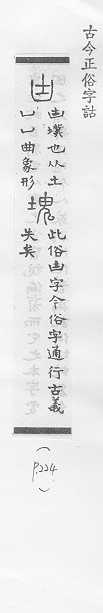 古今正俗字詁
凷
凷墣也从土
凵凵曲象形
塊
此俗凷字今俗字通行古義
失矣
(P.224)